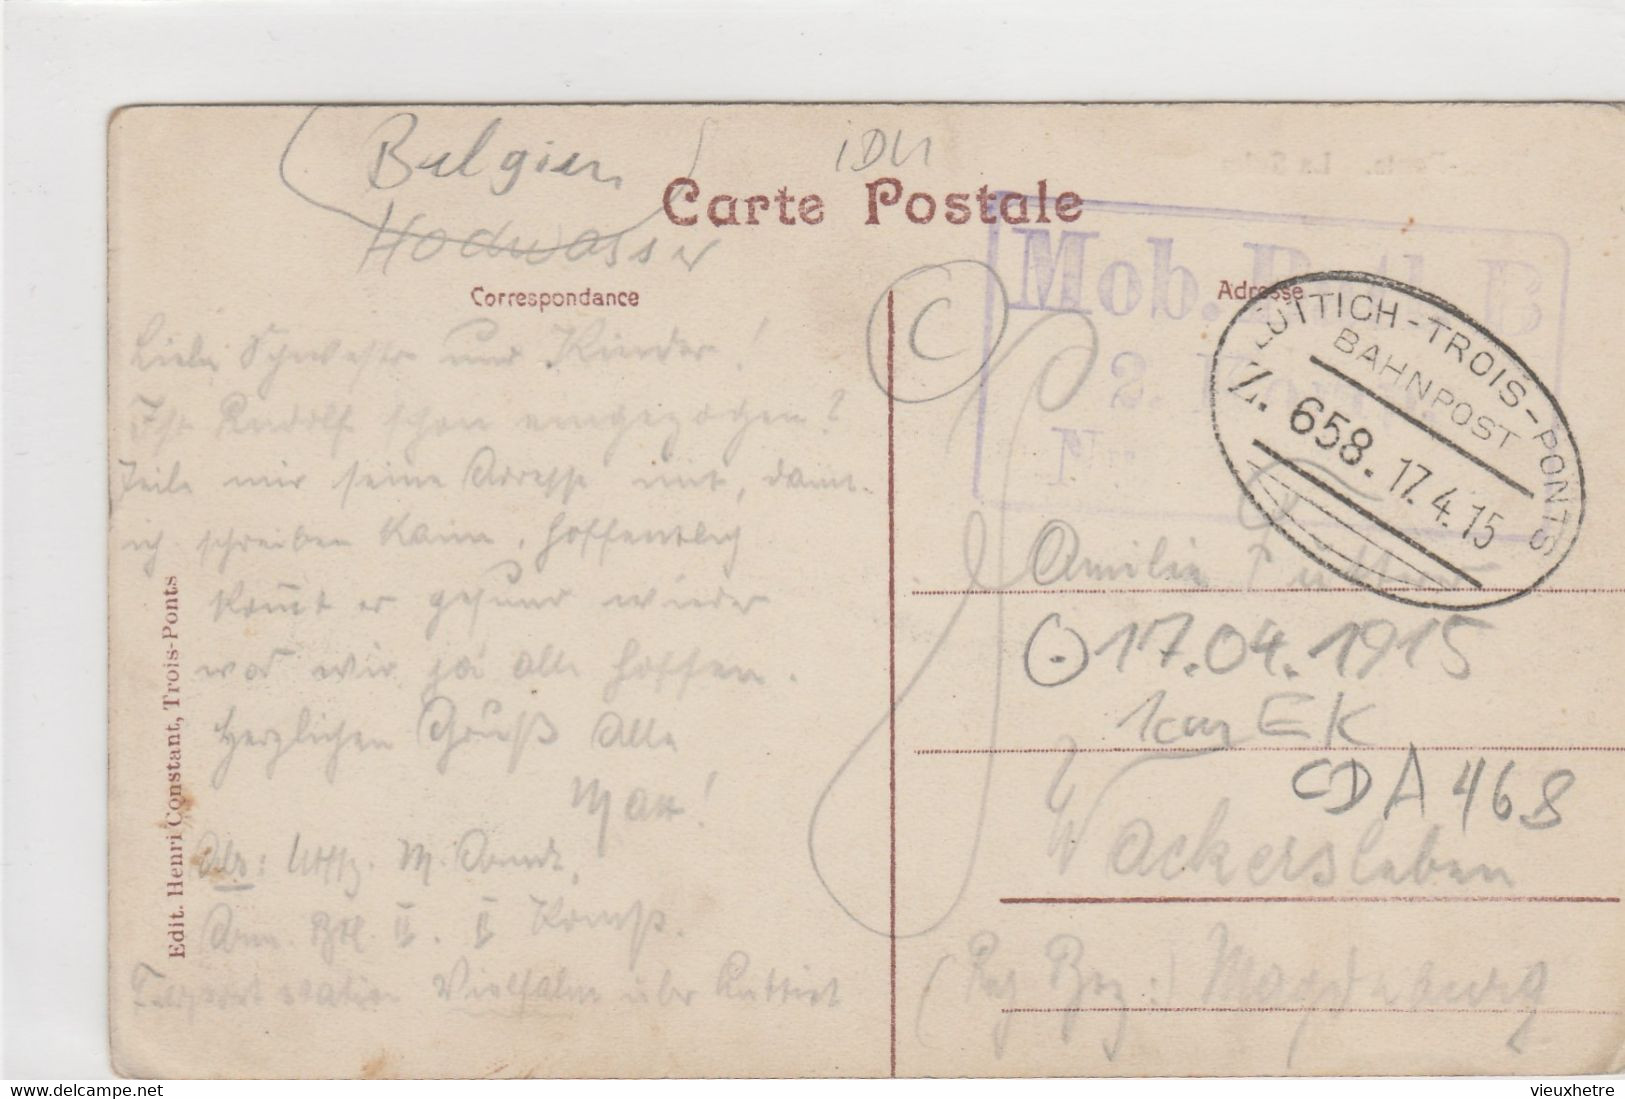 Belgien
Hochwasser
Carte Postale
Correspondance
Adresse
Mob. Batl. B
2.
LÜTTICH-TROIS-PONTS
BAHNPOST
Z. 658. 17.4.15
C
Liebe Schwester und Kinder!
Ist Rudolf schon eingezogen?
Teile mir seine Adresse mit, damit
ich schreiben kann, hoffentlich
kommt er gesund wieder
was wir ja alle hoffen.
Herzlichen Gruß Alle
Max!
M.
II. II Komp.
station Vielsalm über Lüttich
Edit. Henri Constant, Trois-Ponts
Amilie
17.04.1915
EK
CDA 468
Wackersleben
(Reg Bez:) Magdeburg
delcampe.net
vieuxhetre